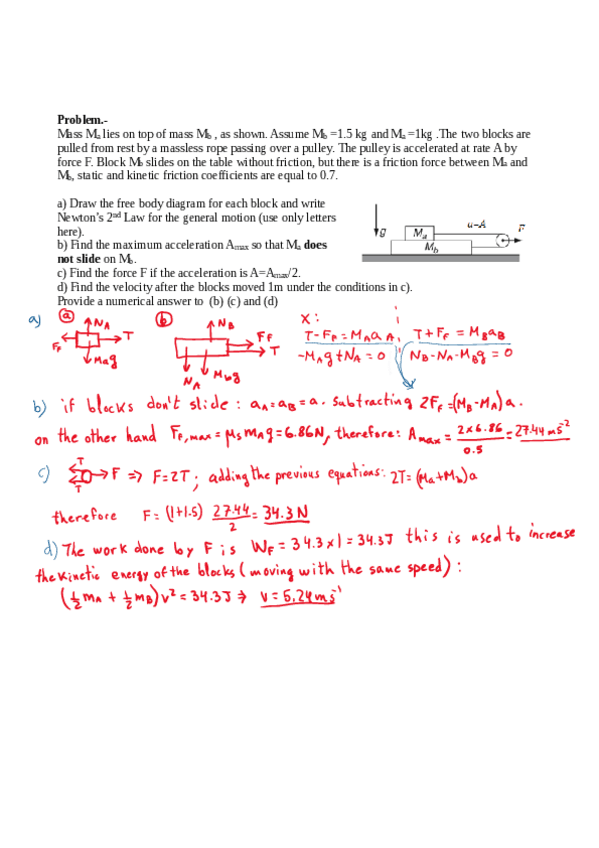 Problem.-
Mass Ma lies on top of mass Mb , as shown. Assume Mb =1.5 kg and Ma =1kg .The two blocks are
pulled from rest by a massless rope passing over a pulley. The pulley is accelerated at rate A by
force F. Block Mb slides on the table without friction, but there is a friction force between Ma and
Mb, static and kinetic friction coefficients are equal to 0.7.
a) Draw the free body diagram for each block and write
Newton's 2nd Law for the general motion (use only letters
here).
b) Find the maximum acceleration Amax so that Ma does
not slide on Mb.
c) Find the force F if the acceleration is A=Amax/2.
d) Find the velocity after the blocks moved 1m under the conditions in c).
Provide a numerical answer to (b) (c) and (d)
g
Ma
Mb
a=A
F
a) a NA T Ff Mag
b NB Ff T NA Mbg
x:
T-Ff = MA aA T+Ff = MB aB
-MAg+NA = 0 NB-NA-MBg = 0
b) if blocks don't slide : aA=aB=a. subtracting 2Ff=(MB-MA)a.
on the other hand Ff,max = μs mAg = 6.86N, therefore: Amax = 2x6.86/0.5 = 27.44 ms-2
c) T T F ⇒ F=2T ; adding the previous equations: 2T=(Ma+Mb)a
therefore F= (1+1.5) 27.44/2 = 34.3 N
d) The work done by F is WF = 34.3x1 = 34.3J this is used to increase
the kinetic energy of the blocks (moving with the same speed) :
(1/2 mA + 1/2 mB)v2 = 34.3J ⇒ v = 5.24 ms-1